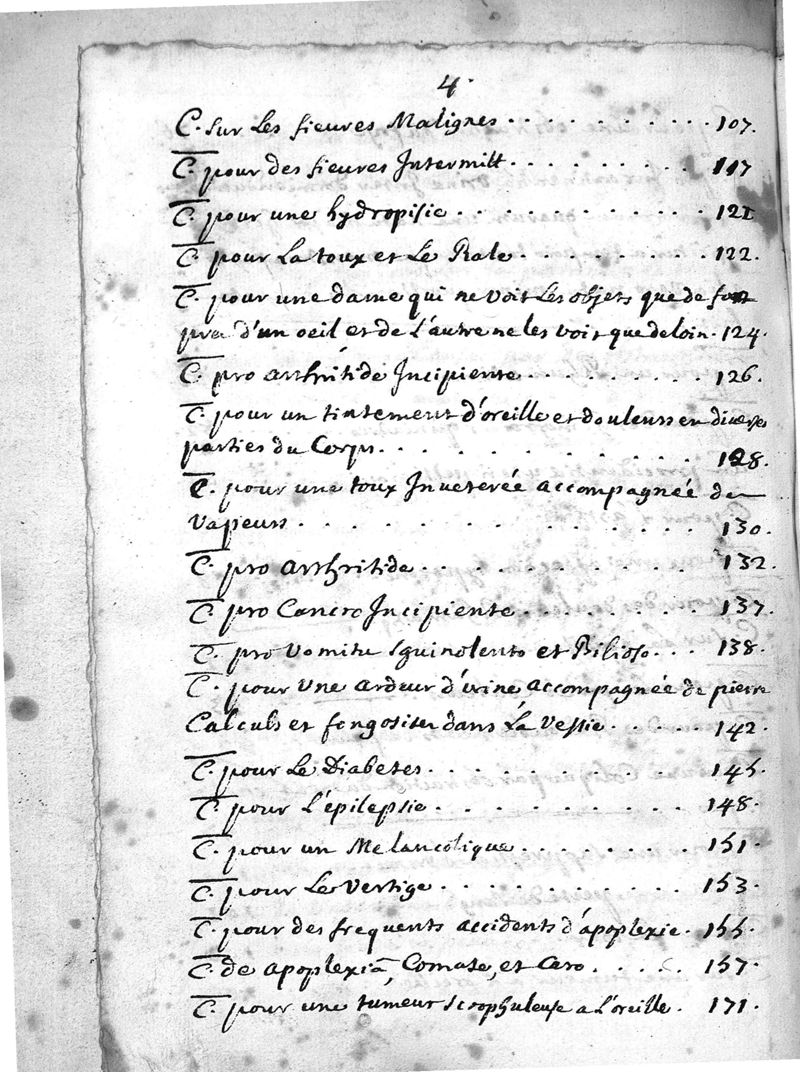 4.
C. sur Les fieures Malignes . . . . . . . . . . 107.
C. pour des fieures Intermitt . . . . . . . . 117
C. pour une hydropisie . . . . . . . . . . 121
C. pour La toux et Le Rale . . . . . . . . 122.
C. pour une dame qui ne voit Les objets que de fort
pres d'un oeil et de L'autre ne les voit que de loin . 124.
C. pro arthritide Incipiente . . . . . . . . 126.
C. pour un tintement d'oreille et douleurs en diverses
parties du Corps . . . . . . . . . . 128.
C. pour une toux Inveterée accompagnée de
Vapeurs . . . . . . . . . . . . 130.
C. pro arthritide . . . . . . . . . . 132.
C. pro Cancro Incipiente . . . . . . . . 137.
C. pro Vomitu sguinolento et Bilioso . . . 138.
C. pour Une ardeur d'urine accompagnée de pierre
Calculs et fongosites dans La Vessie . . . . . 142.
C. pour Le Diabetes . . . . . . . . . . 145.
C. pour L'épilepsie . . . . . . . . . . 148.
C. pour un Melancolique . . . . . . . . 151.
C. pour Le Vertige . . . . . . . . . . 153.
C. pour des frequents accidents d'apoplexie . 155.
C. de apoplexiâ, Comate, et Caro . . . . . 157.
C. pour une tumeur scrophuleuse a L'oreille . 171.